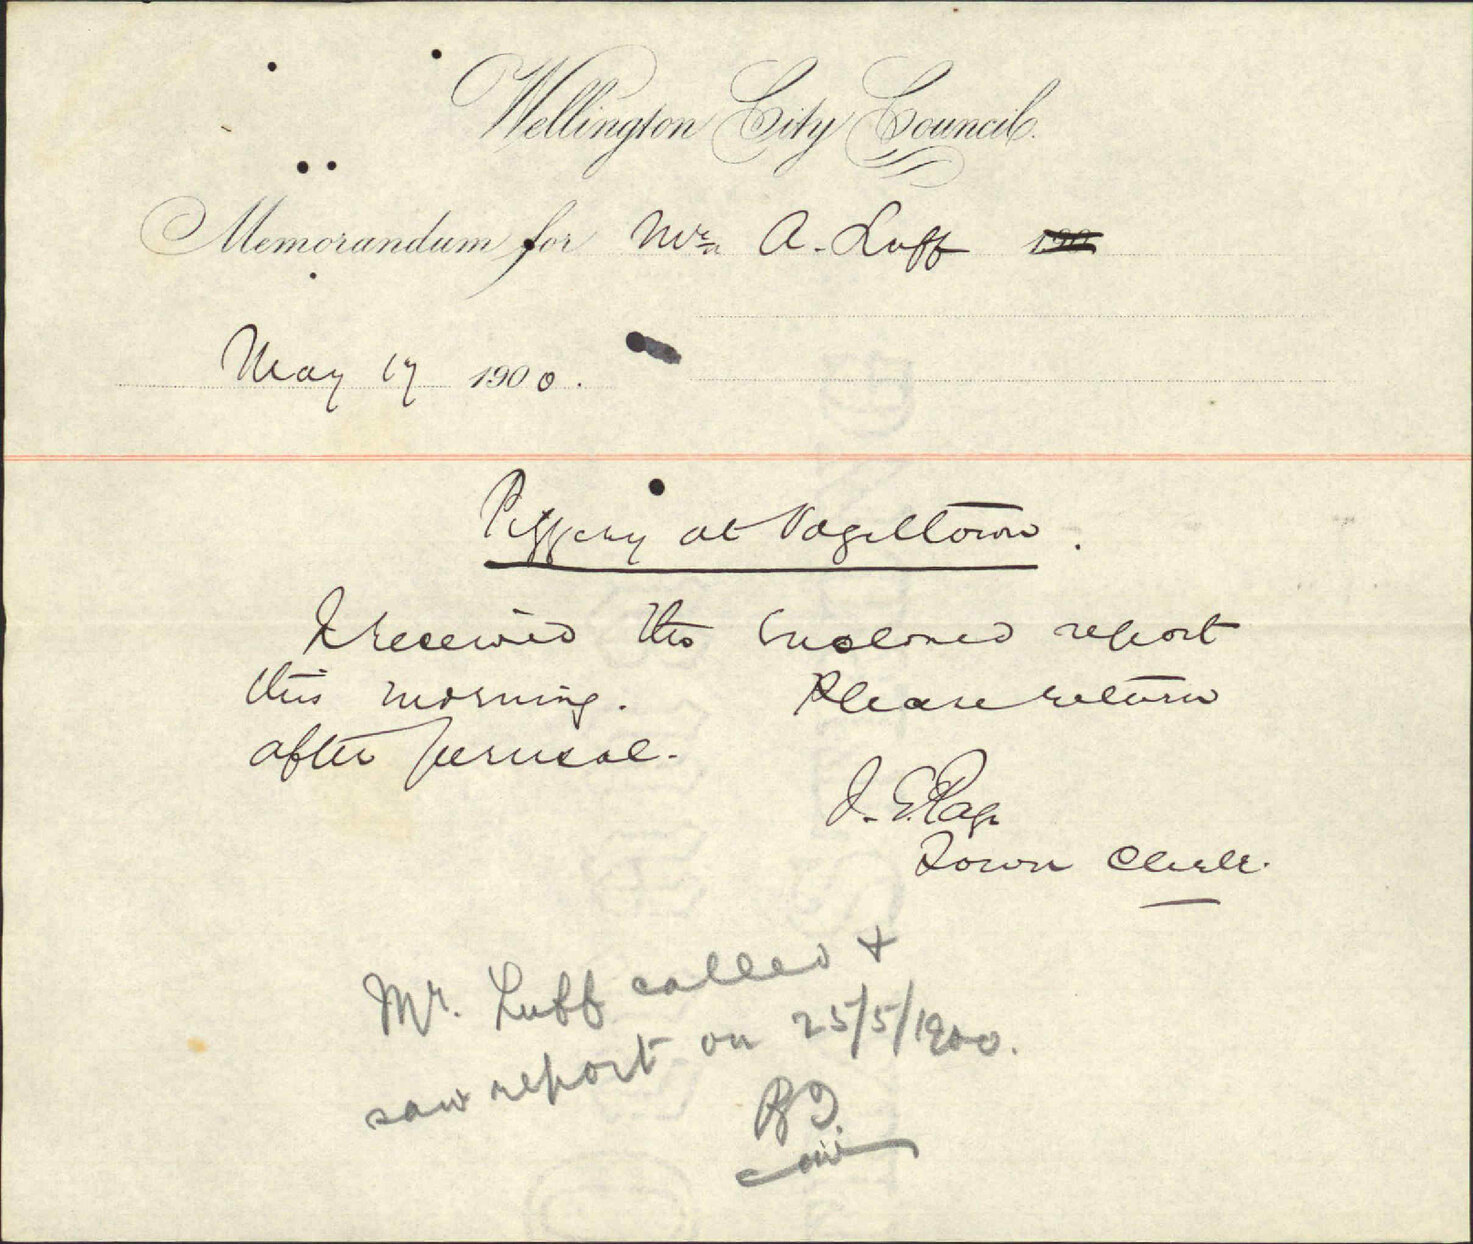 Wellington City Council.
Memorandum for Mr. A. Luff
May 17 1900.
Piggery at Vogeltown.
I received the enclosed report
this morning. Please return
after perusal.
J. E. Page
Town Clerk.
Mr. Luff called &
saw report on 25/5/1900.